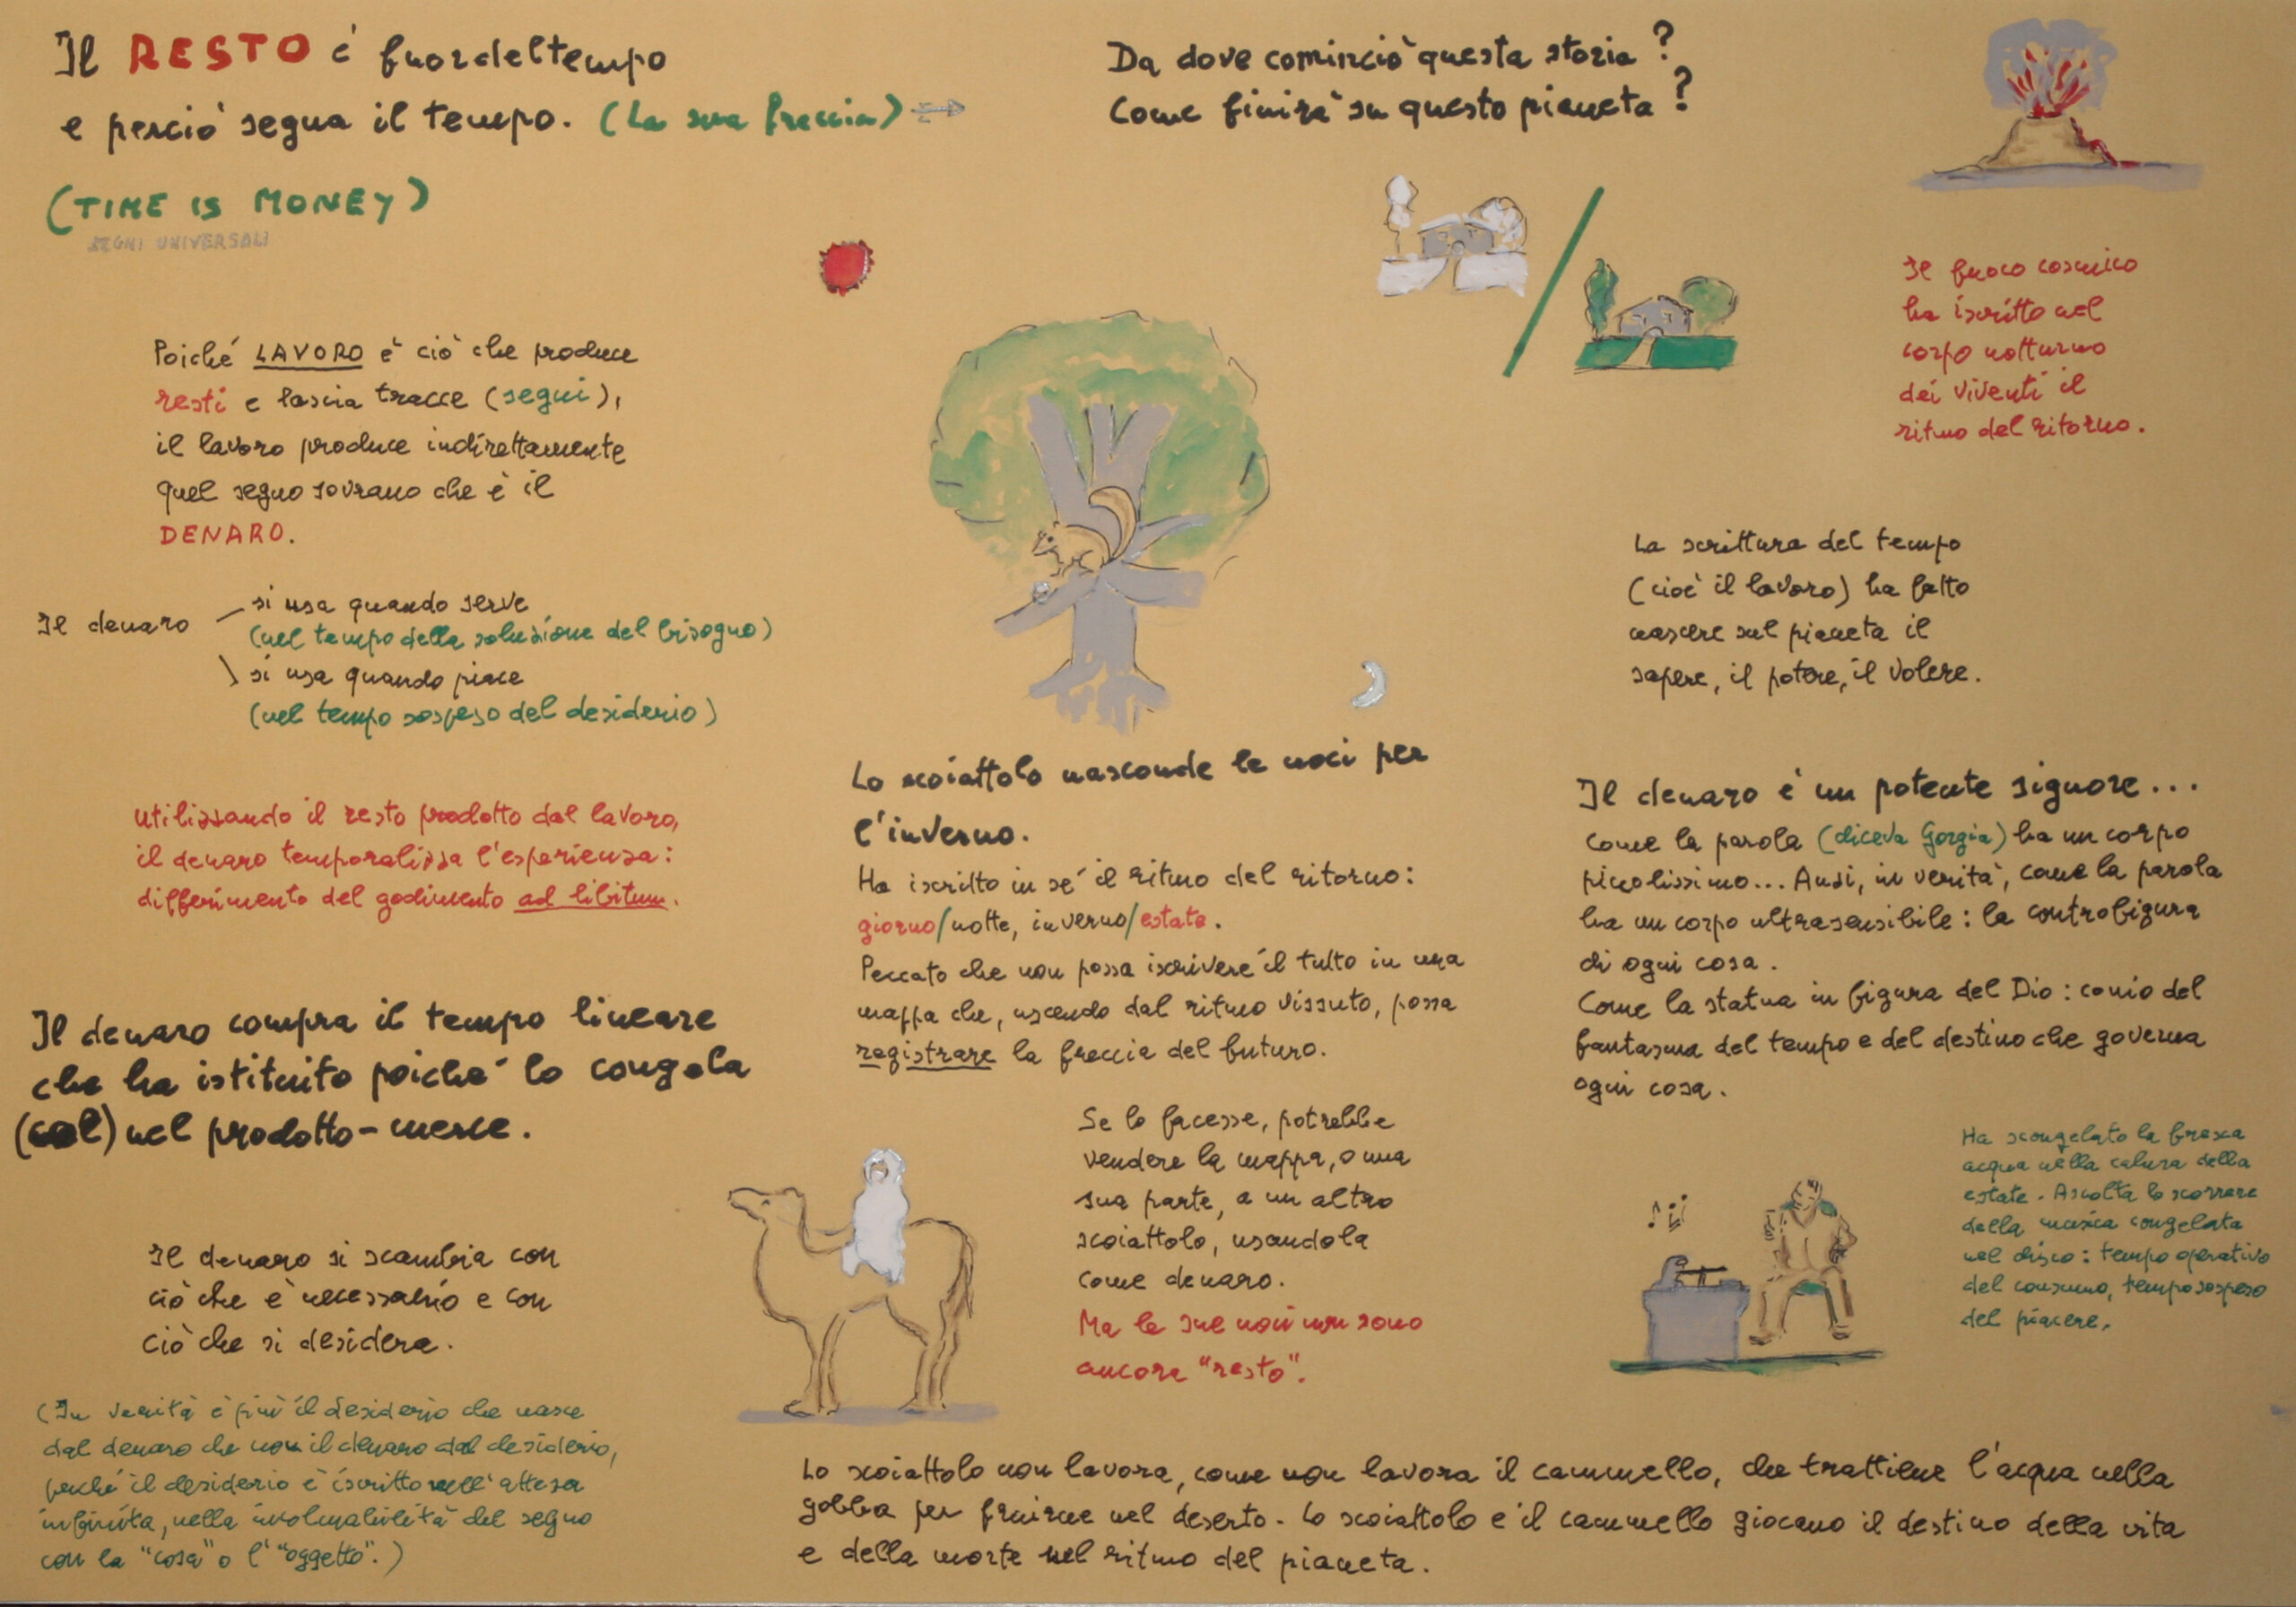 Il RESTO è fuor del tempo
e perciò segna il tempo. (La sua freccia)
(TIME IS MONEY)
SEGNI UNIVERSALI
Poiché LAVORO è ciò che produce
resti e lascia tracce (segni),
il lavoro produce indirettamente
quel segno sovrano che è il
DENARO.
Il denaro
si usa quando serve
(nel tempo della soluzione del bisogno)
si usa quando piace
(nel tempo sospeso del desiderio)
Utilizzando il resto prodotto dal lavoro,
il denaro temporalizza l'esperienza:
differimento del godimento ad libitum.
Il denaro compra il tempo lineare
che ha istituito poiché lo congela
nel prodotto-merce.
Il denaro si scambia con
ciò che è necessario e con
ciò che si desidera.
(In verità è più il desiderio che nasce
dal denaro che non il denaro dal desiderio,
perché il desiderio è iscritto nell'attesa
infinita, nella involuabilità del segno
con la "cosa" o l'"oggetto".)
Da dove cominciò questa storia?
Come finirà su questo pianeta?
Lo scoiattolo nasconde le noci per
l'inverno.
Ha iscritto in sé il ritmo del ritorno:
giorno/notte, inverno/estate.
Peccato che non possa iscrivere il tutto in una
mappa che, uscendo dal ritmo vissuto, possa
registrare la freccia del futuro.
Se lo facesse, potrebbe
vendere la mappa, o una
sua parte, a un altro
scoiattolo, usandola
come denaro.
Ma le sue noci non sono
ancora "resto".
Lo scoiattolo non lavora, come non lavora il cammello, che trattiene l'acqua nella
gobba per fruirne nel deserto. Lo scoiattolo e il cammello giocano il destino della vita
e della morte nel ritmo del pianeta.
Il fuoco cosmico
ha iscritto nel
corpo notturno
dei viventi il
ritmo del ritorno.
La scrittura del tempo
(cioè il lavoro) ha fatto
nascere sul pianeta il
sapere, il potere, il volere.
Il denaro è un potente signore...
come la parola (diceva Gorgia) ha un corpo
piccolissimo... Anzi, in verità, come la parola
ha un corpo ultrasensibile: la controfigura
di ogni cosa.
Come la statua in figura del Dio: conio del
fantasma del tempo e del destino che governa
ogni cosa.
Ha scongelato la fresca
acqua nella calura della
estate. Ascolta lo scorrere
della musica congelata
nel disco: tempo operativo
del consumo, tempo sospeso
del piacere.